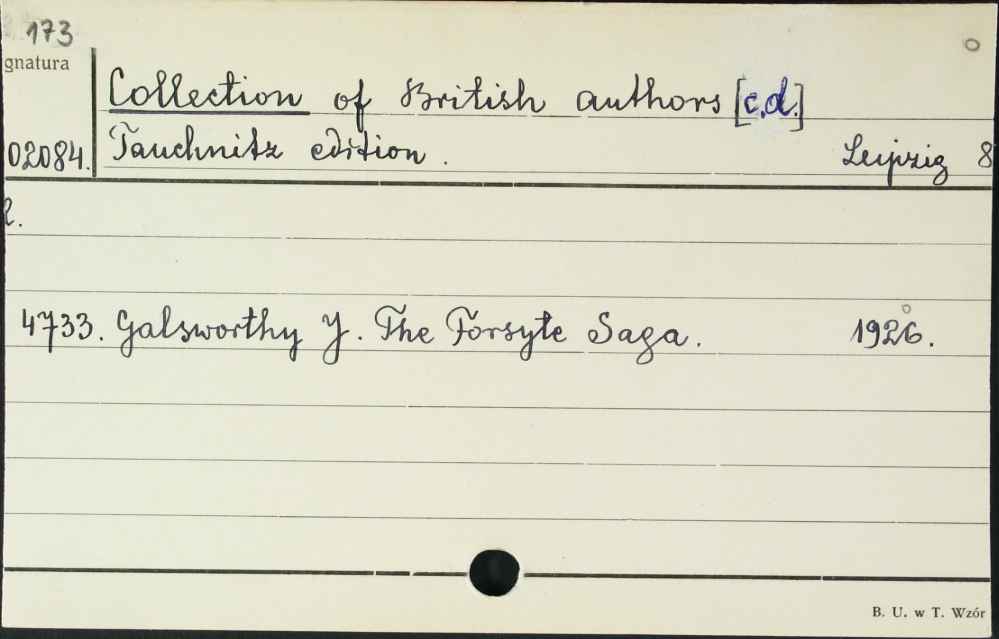 173
gnatura
Collection of British authors [c.d.]
02084. Tauchnitz edition. Leipzig 8
4733. Galsworthy J. The Forsyte Saga. 1926.
B. U. w T. Wzór